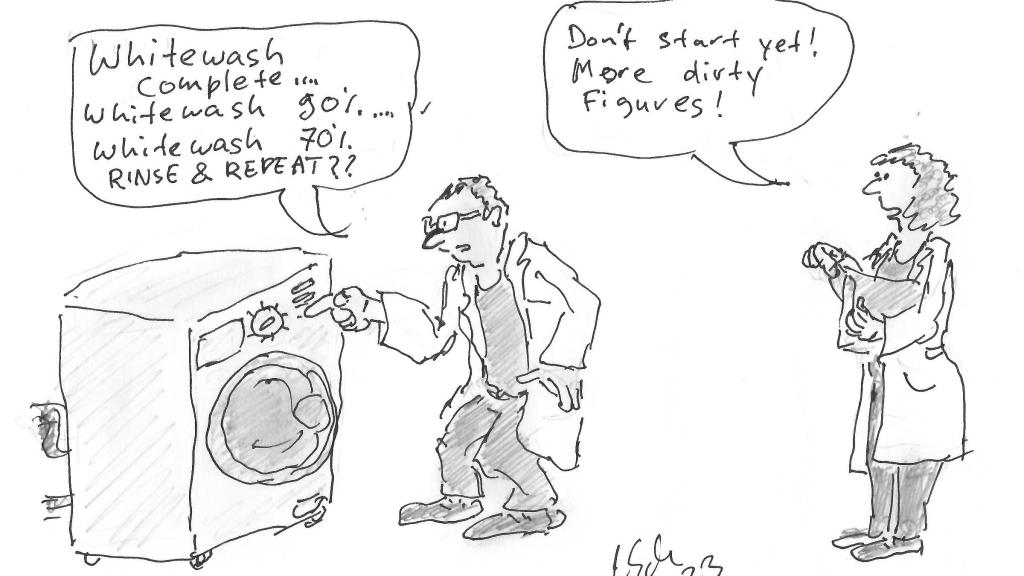 Whitewash
complete....
whitewash 90%....
whitewash 70%.
RINSE & REPEAT??
Don't start yet!
More dirty
Figures!